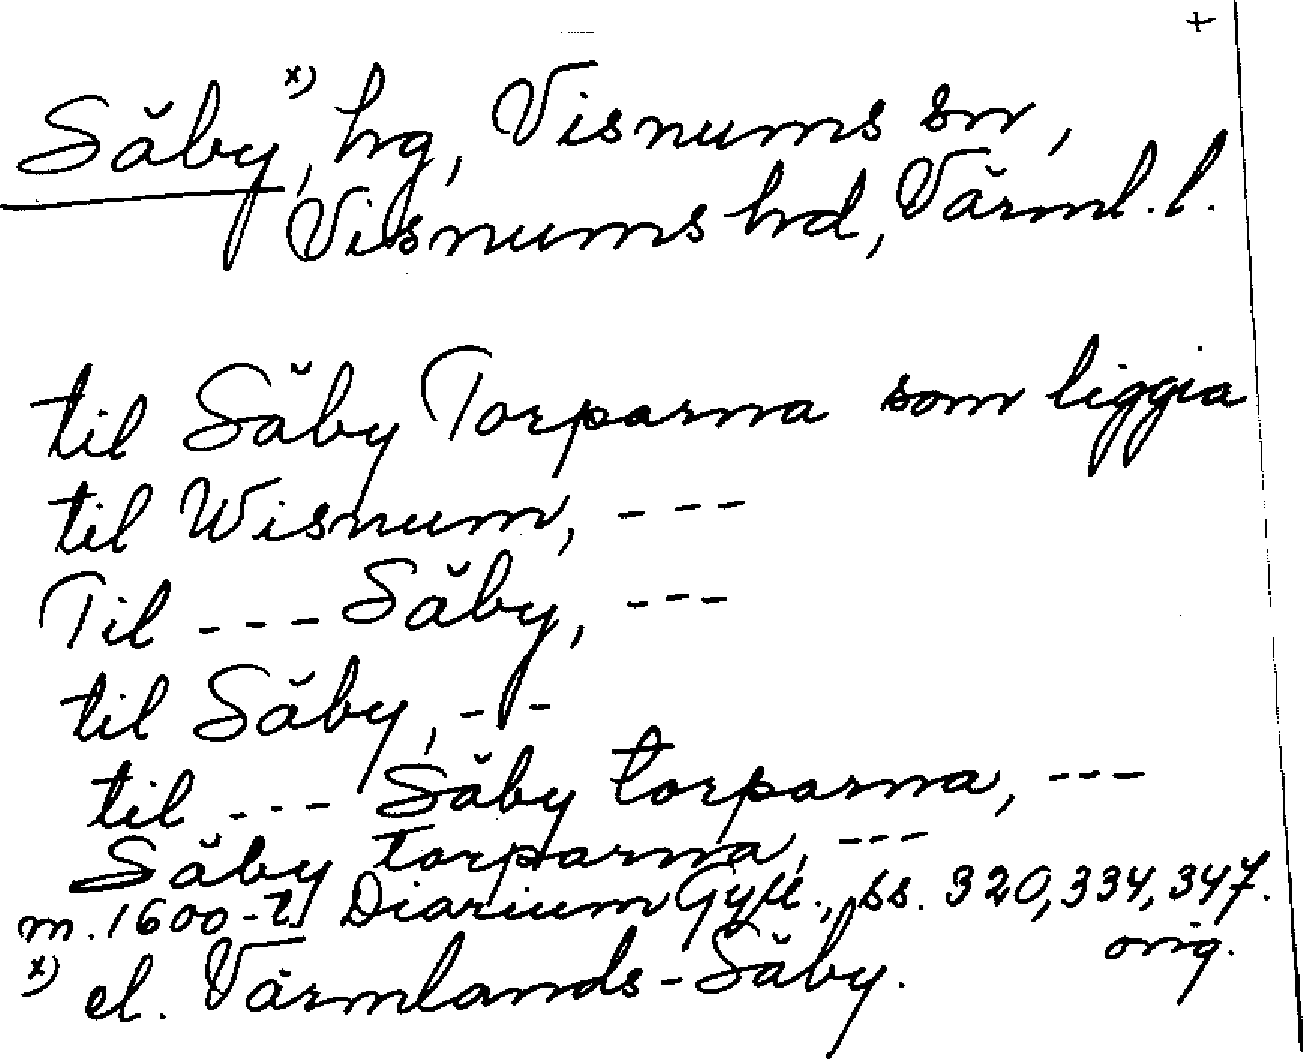 +
Säby, x) hg, Visnums sn,
Visnums hd, Värml. l.
til Säby Torparna som liggia
til Wisnum, ---
Til --- Säby, ---
til Säby, ---
til --- Säby torparna, ---
Säby torparna, ---
m. 1600-t. Diarium Gyll., ss. 320, 334, 347.
orig.
x) el. Värmlands-Säby.